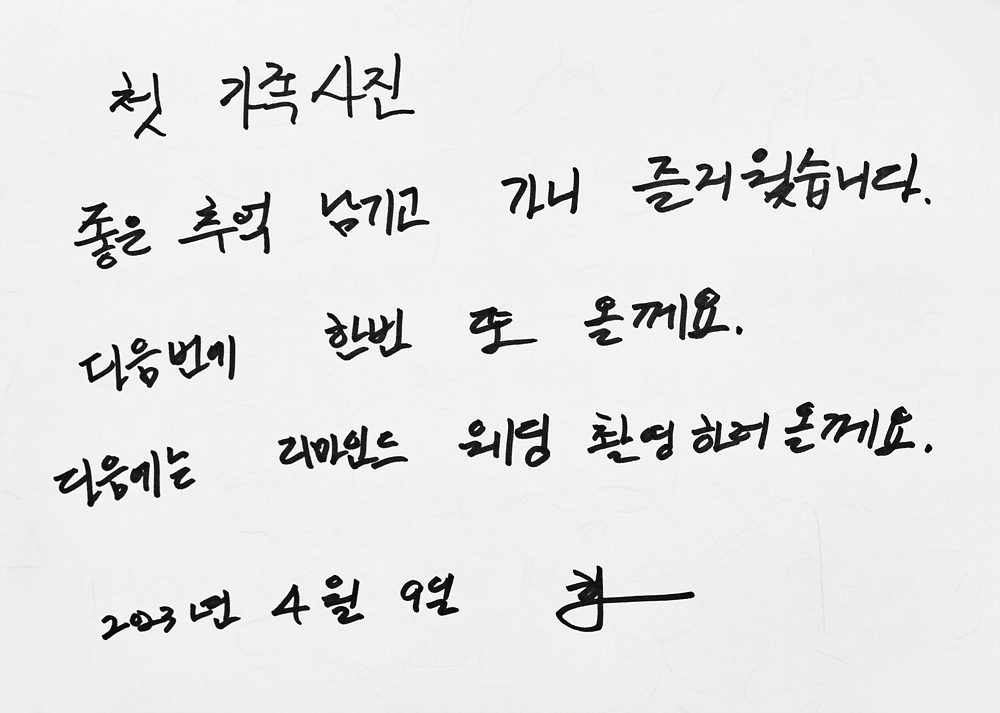 첫 가족사진
좋은 추억 남기고 가니 즐거웠습니다.
다음번에 한번 또 올께요.
다음에는 리마인드 웨딩 촬영하러 올께요.
2023년 4월 9일